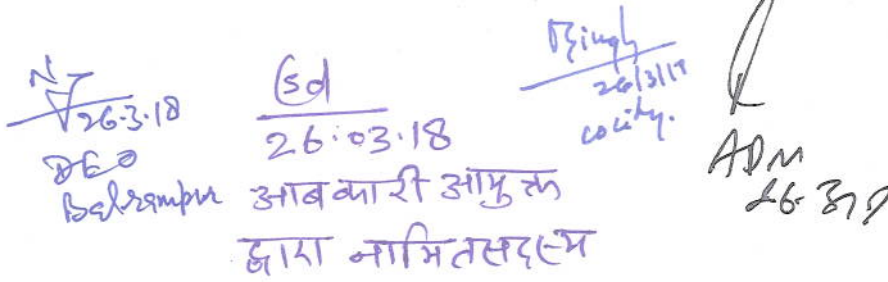 26.3.18
DEO
Balrampur
Sd
26.03.18
आबकारी आयुक्त
द्वारा नामित सदस्य
26/3/18
co city.
ADM